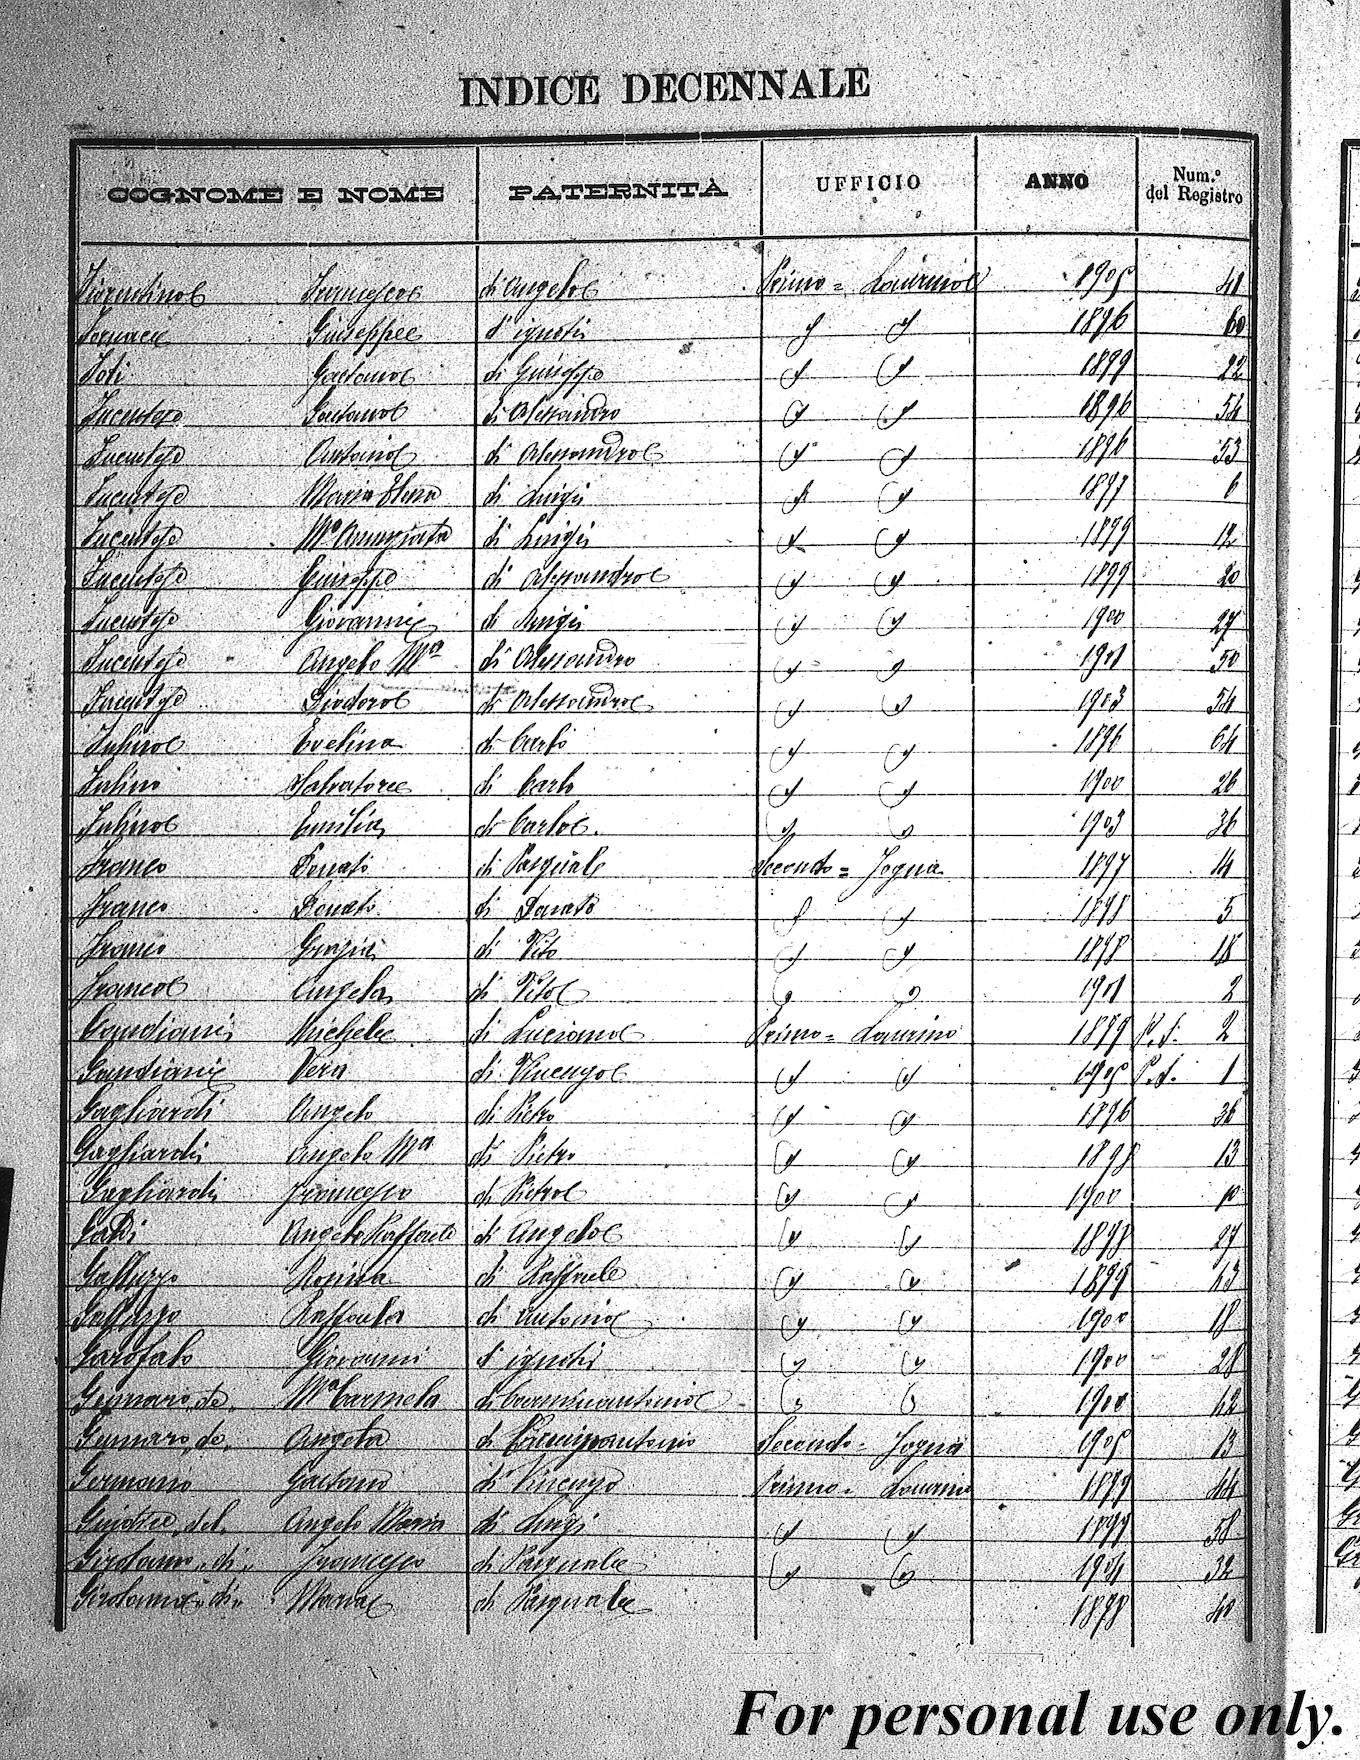 INDICE DECENNALE
COGNOME E NOME PATERNITÀ UFFICIO ANNO Num.º del Registro
Fiorentino Francesco di Angelo Primo = Laurino 1905 41
Fornace Giuseppe d'ignoti " " 1896 60
Foti Gaetano di Giuseppe " " 1899 22
Gaetano di Alessandro " " 1896 54
Antonio di Alessandro " " 1896 53
Maria Elena di Luigi " " 1897 6
Mª Annunziata di Luigi " " 1899 12
Giuseppe di Alessandro " " 1899 20
Giovanni di Luigi " " 1900 27
Angelo Mª di Alessandro " " 1901 50
Diodoro di Alessandro " " 1903 54
Fulino Evelina di Carlo " " 1896 64
Fulino Salvatore di Carlo " " 1900 26
Fulino Emilia di Carlo " " 1903 36
Franco Donato di Pasquale Secondo = Fogna 1897 14
Franco Donato di Donato " " 1898 5
Franco Grazia di Vito " " 1898 18
Franco Angela di Vito " " 1901 2
Gaudiani Michele di Luciano Primo = Laurino 1899 2
Gaudiani Vera di Vincenzo " " 1905 1
Gagliardi Angelo di Pietro " " 1896 36
Gagliardi Angelo Mª di Pietro " " 1898 13
Gagliardi Francesco di Pietro " " 1900 10
Galdi Angelo Raffaele di Angelo " " 1898 27
Galluzzo Rosina di Raffaele " " 1899 13
Galluzzo Raffaela di Antonio " " 1900 18
Garofalo Giovanni d'ignoti " " 1900 28
Gennaro, de, Mª Carmela di Carminantonio " " 1900 12
Gennaro, de, Angela di Carminantonio Secondo = Fogna 1905 13
Germano Gaetano di Vincenzo Primo = Laurino 1899 44
Giudice, del, Angelo Maria di Luigi " " 1897 58
Girolamo, di, Francesco di Pasquale " " 1904 32
Girolamo, di, Maria di Pasquale 1898 40
For personal use only.